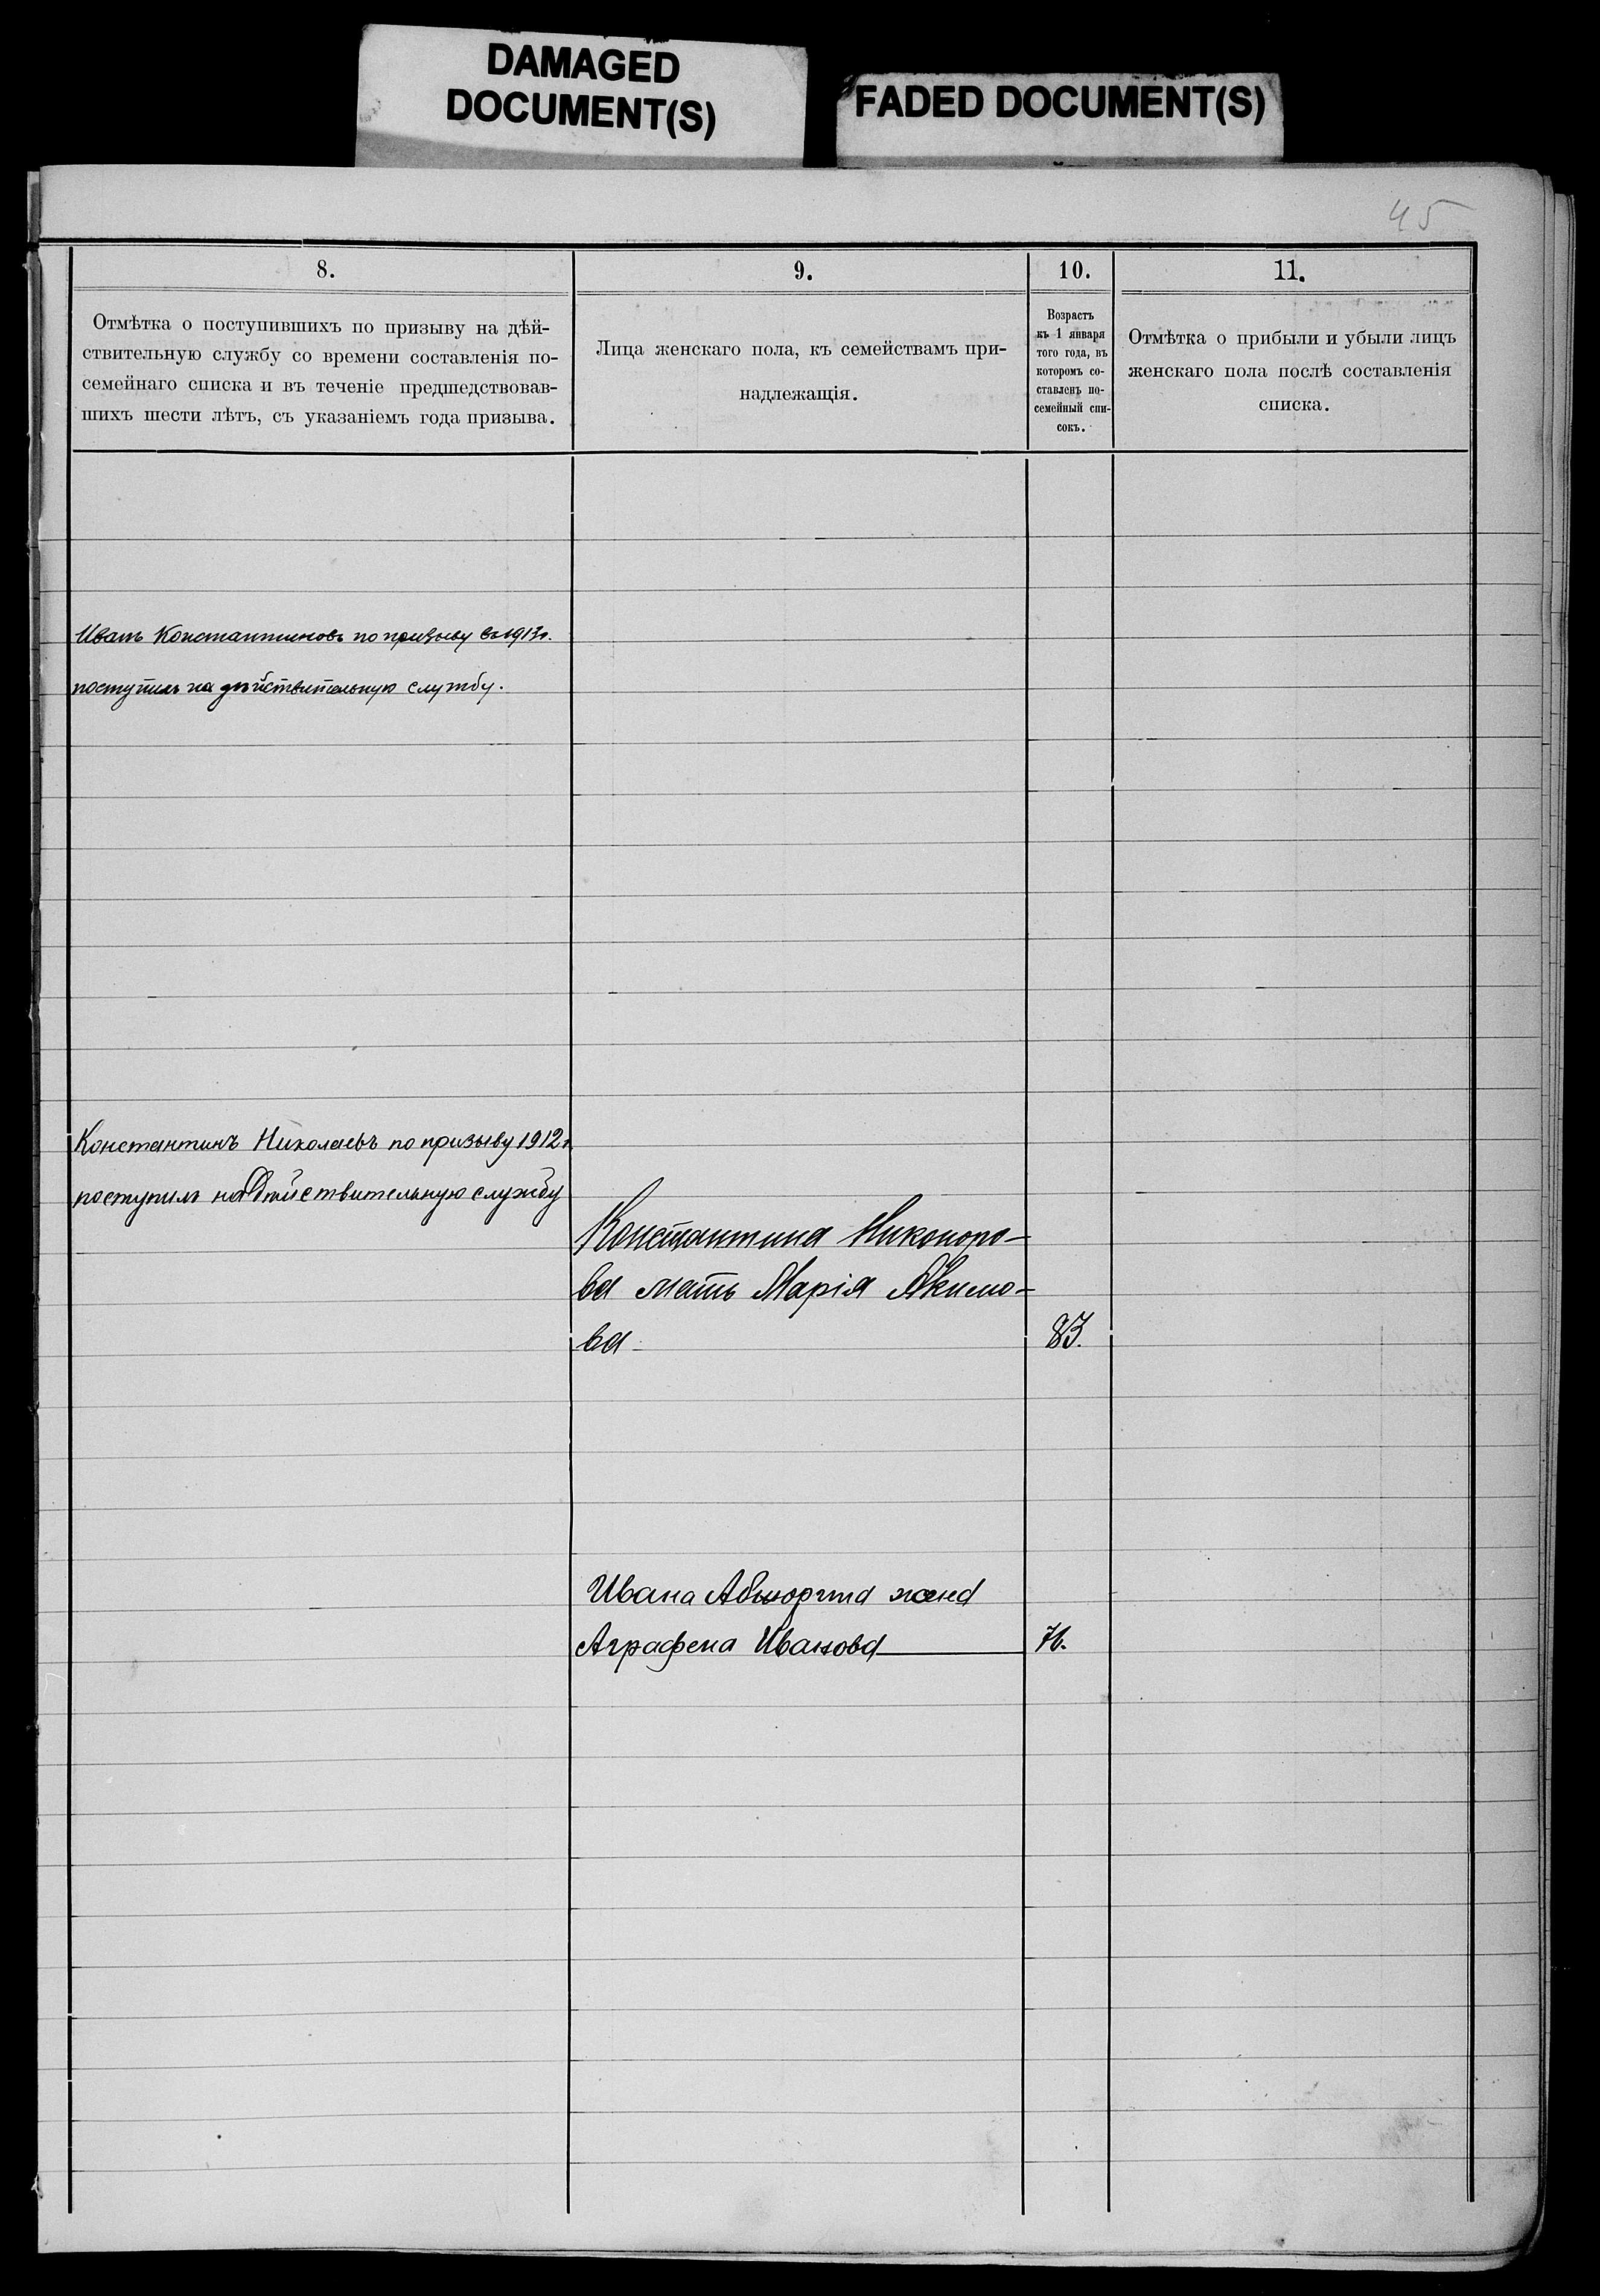 DAMAGED
DOCUMENT(S)
FADED DOCUMENT(S)
45
8.
9.
10.
11.
Отмѣтка о поступившихъ по призыву на дѣй-
ствительную службу со времени составленія по-
семейнаго списка и въ теченіе предшедствовав-
шихъ шести лѣтъ, съ указаніемъ года призыва.
Лица женскаго пола, къ семействамъ при-
надлежащія.
Возрастъ
къ 1 января
того года, въ
которомъ со-
ставленъ по-
семейный спи-
сокъ.
Отмѣтка о прибыли и убыли лицъ
женскаго пола послѣ составленія
списка.
Иванъ Константиновъ по призыву въ 1913г.
поступилъ на дѣйствительную службу.
Константинъ Николаевъ по призыву 1912г
поступилъ на Дѣйствительную службу
Константина Никоноро-
ва мать Марія Акимо-
ва
83.
Ивана жена
Аграфена Иванова